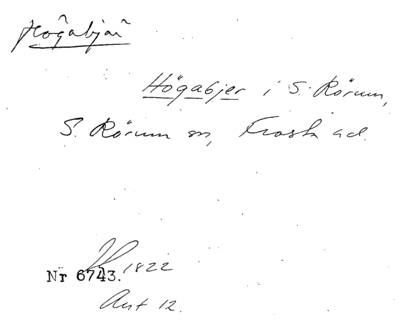 Högabjär
Högabjer i S. Rörum,
S. Rörum sn, Frosta hd.
1822
Nr 6743.
Ant 12.